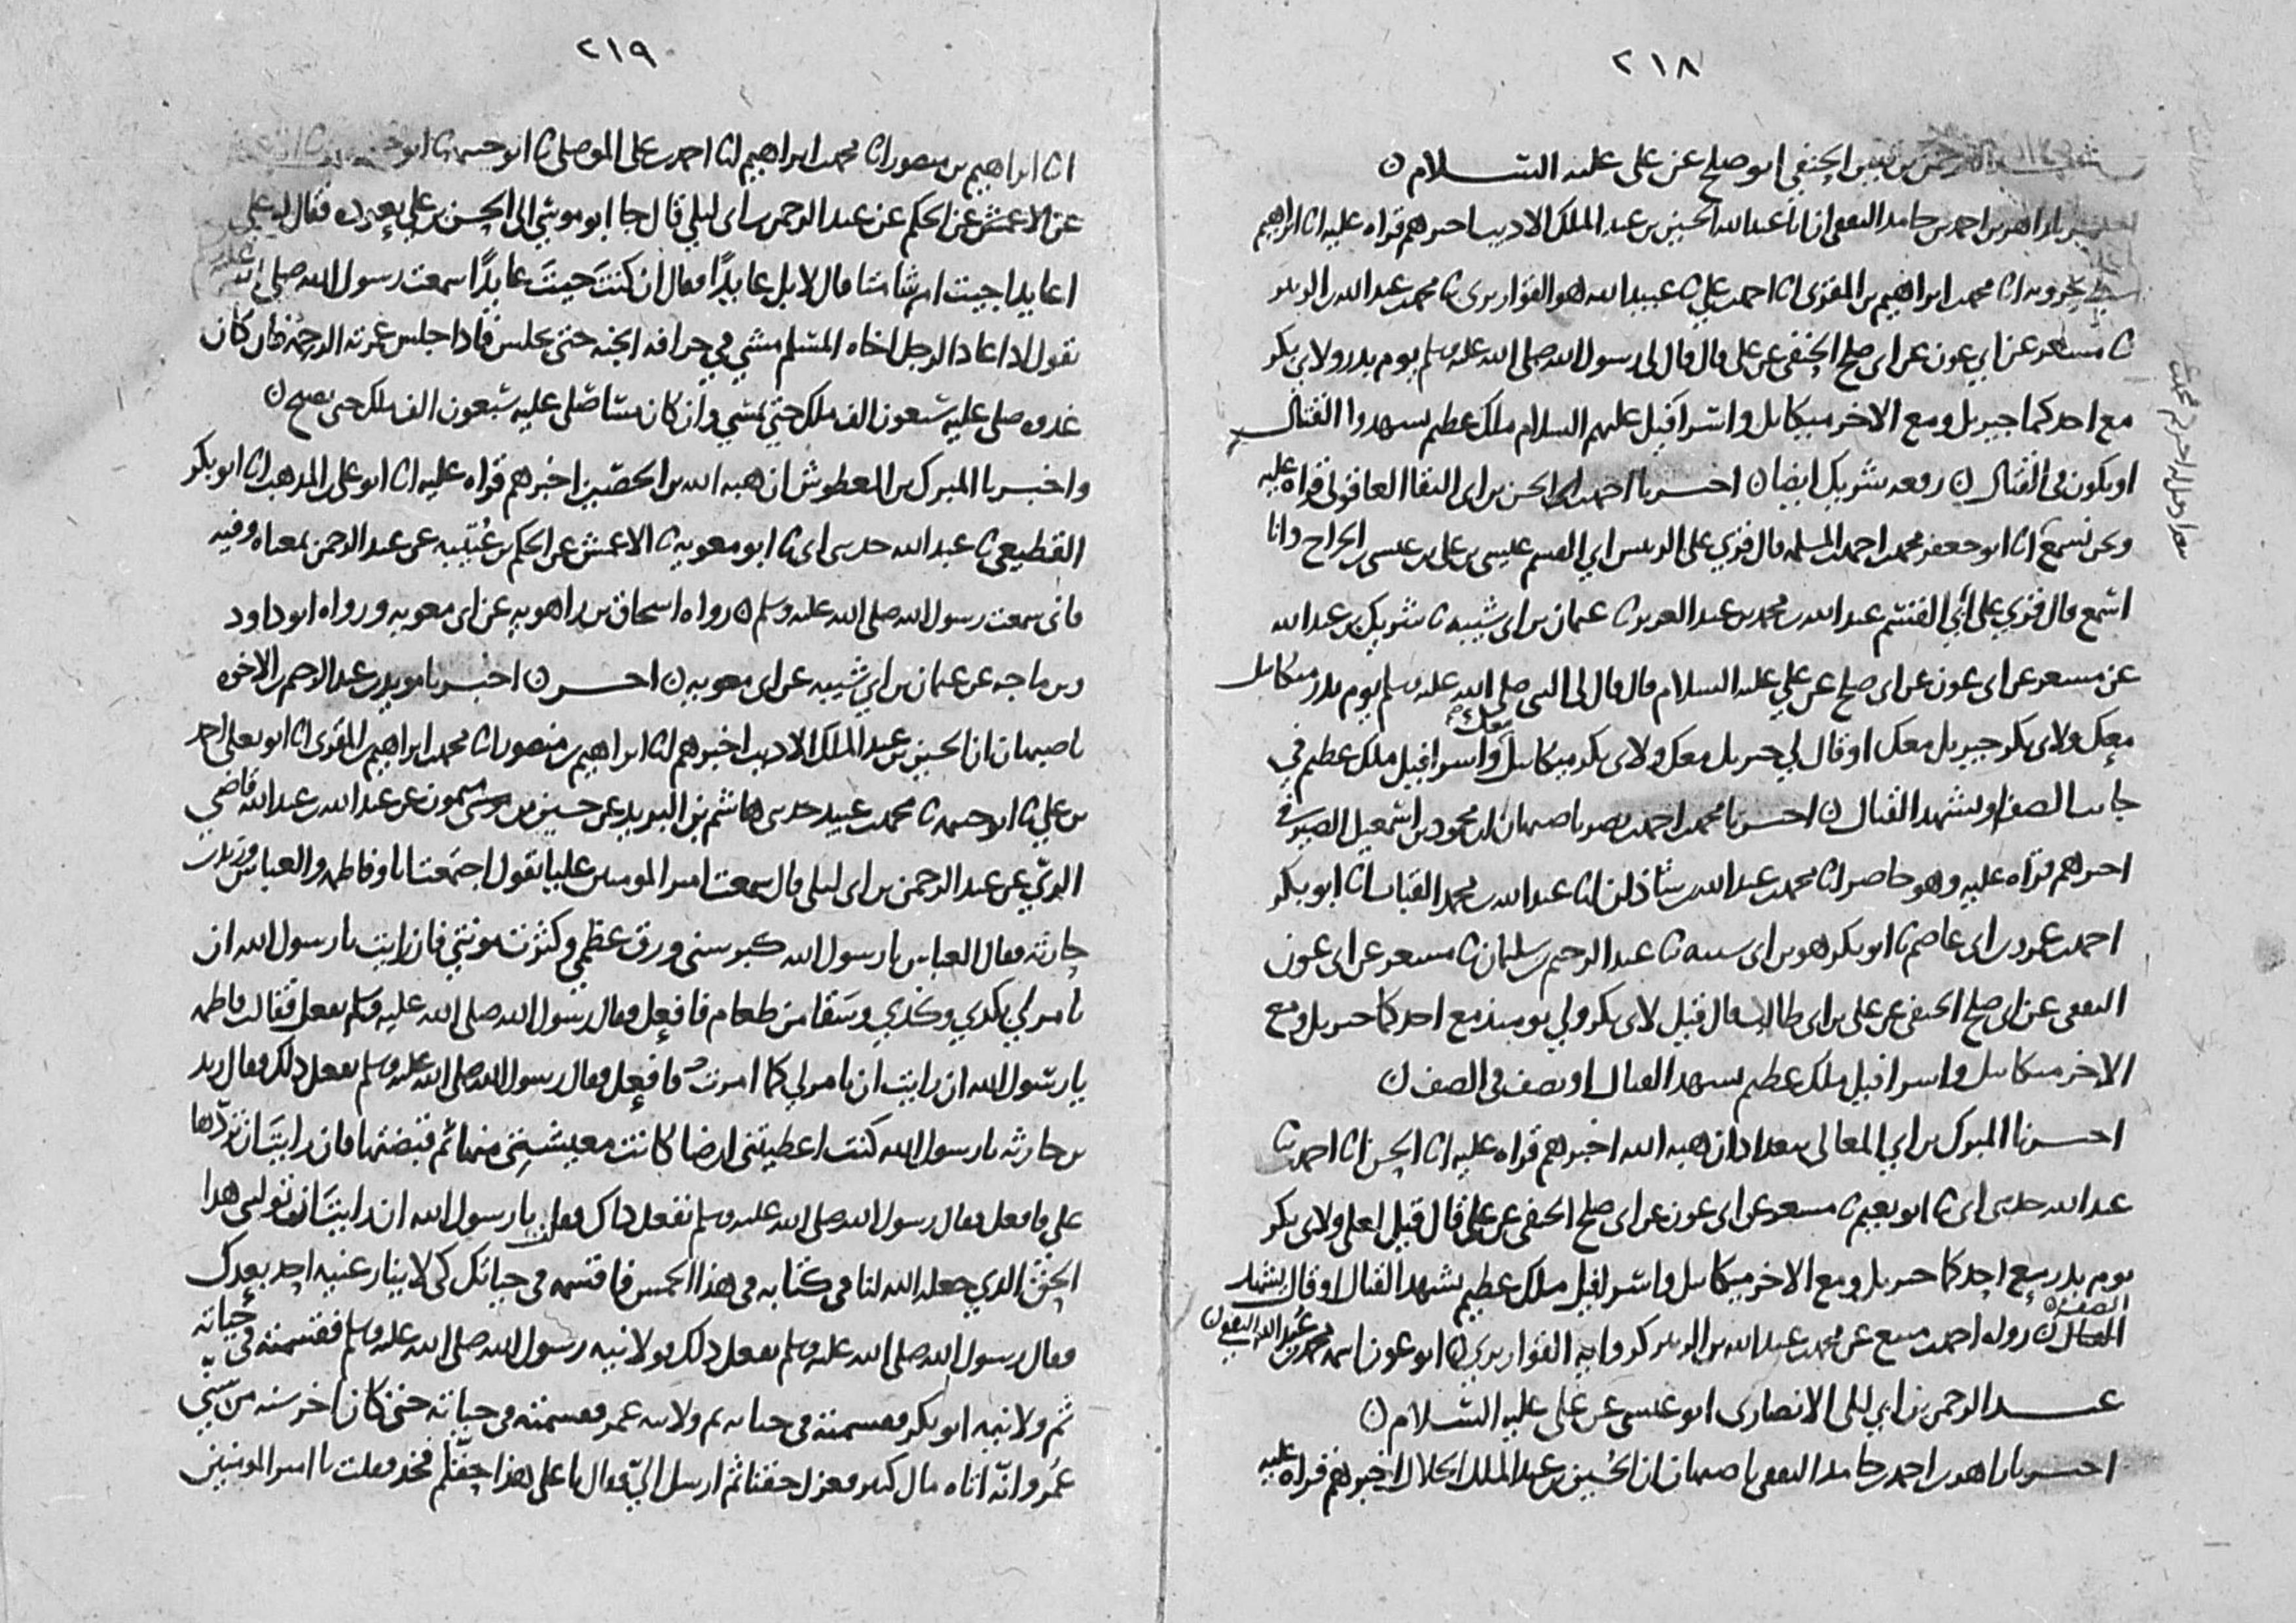 ٢١٨
عبد الرحمن بن قيس الحنفي ابو صلح عن علي عليه الســلام
زاهر بن احمد بن حامد الثقفي ان ابا عبد الله الحسين بن عبد الملك الاديب اخبرهم قراه عليه انا ابراهيم
سبط بحرويه انا محمد بن ابراهيم بن المقرئ انا احمد بن علي ثنا عبيد الله هو القواريري ثنا محمد بن عبد الله بن الزبير
ثنا مسعر عن ابي عون عن ابي صلح الحنفي عن علي قال قال لي رسول الله صلى الله عليه وسلم يوم بدر ولابي بكر
مع احدكما جبريل ومع الاخر ميكايل واسرافيل عليهم السلام ملك عظيم يشهدوا القتال
او يكون في القتال رفعه شريك ايضا اخبرنا احمد بن ابي الحسن بن ابي البقا العاقولي قراه عليه
ونحن نسمع انا ابو جعفر محمد بن احمد بن المسلمة قال قري على الرئيس ابي القسم عيسى بن علي بن عيسى بن الجراح وانا
اسمع قال قري على ابي القسم عبد الله بن محمد بن عبد العزيز ثنا عثمان بن ابي شيبه ثنا شريك بن عبد الله
عن مسعر عن ابي عون عن ابي صلح عن علي عليه السلام قال قال لي النبي صلى الله عليه وسلم يوم بدر ميكايل
معك ولابي بكر جبريل معك او قال لي جبريل معك ولابي بكر ميكايل معك واسرافيل ملك عظيم في
جانب الصف او يشهد القتال اخبرنا محمد بن احمد بن نصر باصبهان ان محمود بن اسمعيل الصيرفي
اخبرهم قراه عليه وهو حاضر انا محمد بن عبد الله بن شاذان انا عبد الله بن محمد القباب انا ابو بكر
احمد بن عمرو بن ابي عاصم ثنا ابو بكر هو بن ابي شيبه ثنا عبد الرحيم بن سليمان ثنا مسعر عن ابي عون
الثقفي عن ابي صلح الحنفي عن علي بن ابي طالب قال قيل لابي بكر ولي يوم بدر مع احدكما جبريل ومع
الاخر ميكايل واسرافيل ملك عظيم يشهد القتال او يصف في الصف
اخبرنا المبرك بن ابي المعالي ببغداد ان هبه الله اخبرهم قراه عليه انا الحسن انا احمد ثنا
عبد الله حدثني ابي ثنا ابو نعيم ثنا مسعر عن ابي عون عن ابي صلح الحنفي عن علي قال قيل لعلي ولابي بكر
يوم بدر مع احدكما جبريل ومع الاخر ميكايل واسرافيل ملك عظيم يشهد القتال او قال يشهد
الصف
القتال رواه احمد بن منيع عن محمد بن عبد الله بن الزبير كروايه القواريري ابو عون اسمه محمد بن عبيد الله الثقفي
عبد الرحمن بن ابي ليلى الانصاري ابو عيسى عن علي عليه الســلام
اخبرنا زاهر بن احمد بن حامد الثقفي باصبهان ان الحسين بن عبد الملك الخلال اخبرهم قراه عليه
٢١٩
انا ابراهيم بن منصور انا محمد بن ابراهيم انا احمد بن علي الموصلي ثنا ابو خيثمة ثنا
عن الاعمش عن الحكم عن عبد الرحمن بن ابي ليلى قال جا ابو موسى الى الحسن بن علي يعوده فقال له علي
اعايدا جيت ام شامتا قال لا بل عايدا فقال ان كنت جيت عايدا سمعت رسول الله صلى الله عليه
يقول اذا عاد الرجل اخاه المسلم مشى في خرافة الجنه حتى يجلس فاذا جلس غمرته الرحمه فان كان
غدوه صلى عليه سبعون الف ملك حتى يمسي وان كان مسا صلى عليه سبعون الف ملك حتى يصبح
واخبرنا المبرك بن المعطوش ان هبه الله بن الحصين اخبرهم قراه عليه انا ابو علي بن المذهب انا ابو بكر
القطيعي ثنا عبد الله حدثني ابي ثنا ابو معويه ثنا الاعمش عن الحكم بن عتيبه عن عبد الرحمن بمعناه وفيه
فاني سمعت رسول الله صلى الله عليه وسلم رواه اسحاق بن راهويه عن ابي معويه ورواه ابو داود
وبن ماجه عن عثمان بن ابي شيبه عن ابي معويه اخــر اخبرنا مويد بن عبد الرحيم بن الاخوه
باصبهان ان الحسين بن عبد الملك الاديب اخبرهم انا ابراهيم بن منصور انا محمد بن ابراهيم بن المقرئ انا ابو يعلى احمد
بن علي ثنا ابو خيثمة ثنا محمد بن عبيد حدثني هاشم بن البريد عن حسين بن ميمون عن عبد الله بن عبد الله قاضي
الري عن عبد الرحمن بن ابي ليلى قال سمعت امير المومنين عليا يقول اجتمعت انا وفاطمه والعباس وزيد بن
حارثه فقال العباس يا رسول الله كبر سني ورق عظمي وكثرت مونتي فان رايت يا رسول الله ان
تامر لي بكذي وكذي وسقا من طعام فافعل فقال رسول الله صلى الله عليه وسلم نفعل فقالت فاطمه
يا رسول الله ان رايت ان تامر لي كما امرت فافعل فقال رسول الله صلى الله عليه وسلم نفعل ذلك وقال زيد
بن حارثه يا رسول الله كنت اعطيتني ارضا كانت معيشتي منها ثم قبضتها فان رايت ان تردها
علي فافعل فقال رسول الله صلى الله عليه وسلم نفعل ذاك فقلت يا رسول الله ان رايت ان توليني هذا
الحق الذي جعله الله لنا في كتابه في هذا الخمس فاقسمه في حياتك كي لا ينازعنيه احد بعدك
فقال رسول الله صلى الله عليه وسلم نفعل ذلك فولانيه رسول الله صلى الله عليه وسلم فقسمته في حياته
ثم ولانيه ابو بكر فقسمته في حياته ثم ولانيه عمر فقسمته في حياته حتى كان اخر سنه من سني
عمر وانه اتاه مال كثير فعزل حقنا ثم ارسل الي فقال يا علي هذا حقكم فخذ فقلت يا امير المومنين